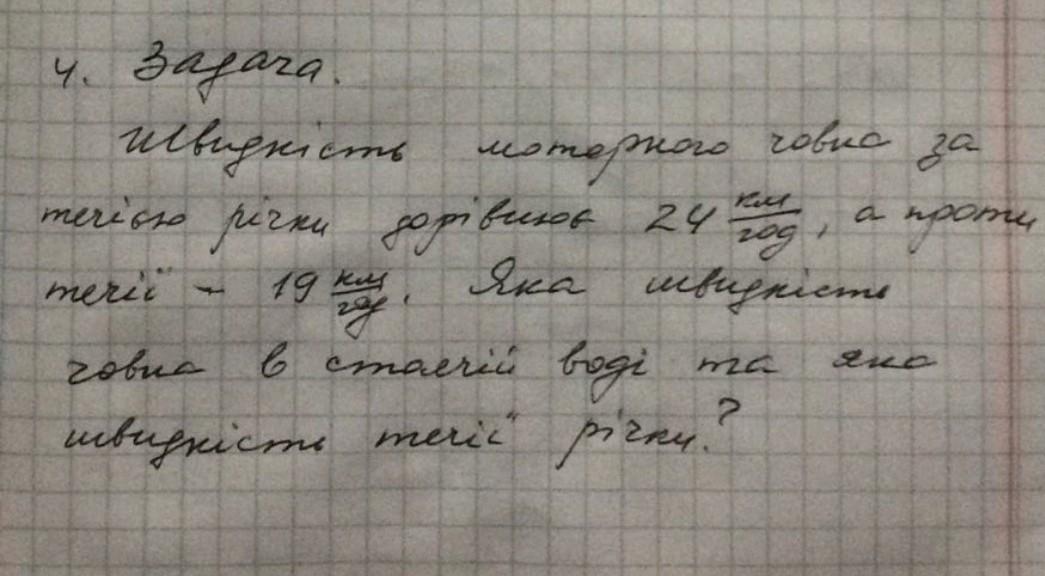 4. Задача.
Швидкість моторного човна за
течією річки дорівнює 24 км/год, а проти
течії - 19 км/год. Яка швидкість
човна в стоячій воді та яка
швидкість течії річки?